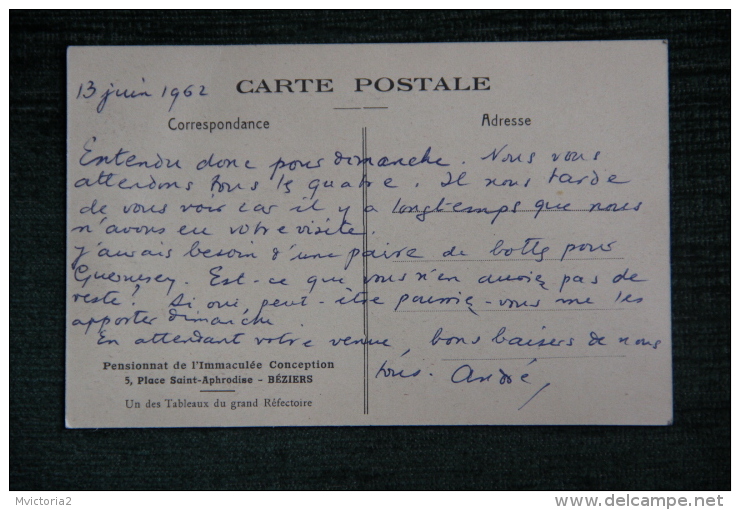 13 juin 1962
CARTE POSTALE
Correspondance
Adresse
Entendu donc pour dimanche. Nous vous
attendons tous les quatre. Il nous tarde
de vous voir car il y a longtemps que nous
n'avons eu votre visite.
j'aurais besoin d'une paire de bottes pour
Guernesey. Est-ce que vous n'en auriez pas de
reste? Si oui, peut-être pourriez-vous me les
apporter dimanche.
En attendant votre venue, bons baisers de nous
tous. André
Pensionnat de l'Immaculée Conception
5, Place Saint-Aphrodise - BÉZIERS
Un des Tableaux du grand Réfectoire
Mvictoria2
delcampe.net